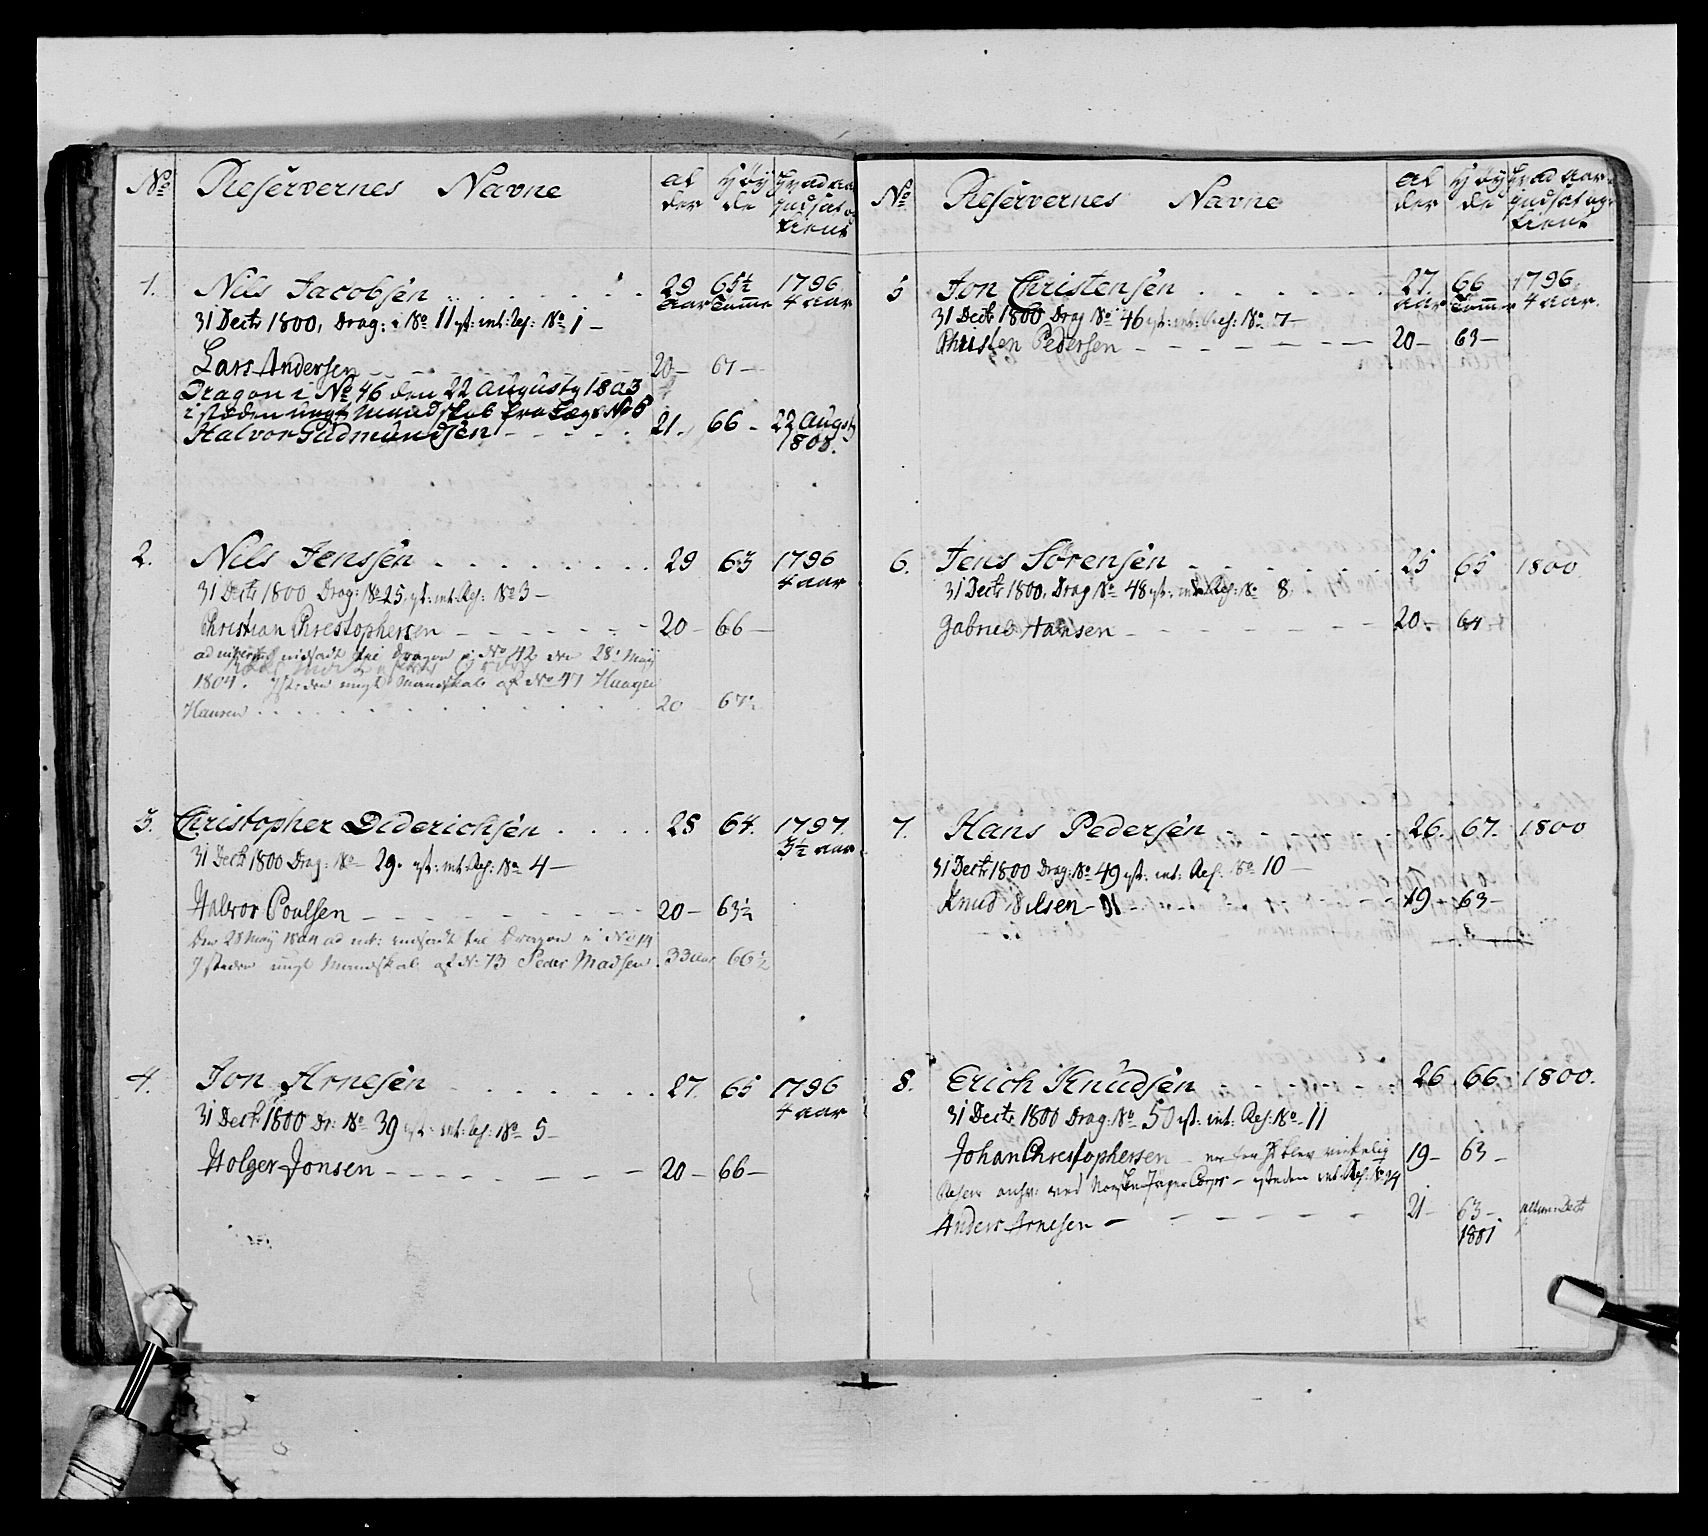 No Reservernes Navne al der Høy de Hvad Aar Indsat og tient
1. Nils Jacobsen 29 Aar 65½ Tomme 1796 4 aar
31 Decbr 1800, Drag: i No 11 ist: int: Res: No 1 —
Lars Andersen 20 — 67 —
Dragon i No 46 den 22 Augusty 1803
i steden ungt mandskab fra Lægs No 6
Halvor Gudmundsen 21. 66 — 22 Augsty 1803.
2. Nils Jenssen 29 63 1796 4 aar
31 Decbr 1800 Drag: No 25 ist: int: Res: No 3 —
Christian Christophersen 20 — 66 —
ad interim indsadt til Dragon i No 42 den 28 May
1804. I steden ungt Mandskab af No 47 Haagen
Hansen 20 67½
3. Christopher Diderichsen 28 64. 1797. 3½ aar
31 Decbr 1800 Drag: No 29. ist: int: Res: No 4 —
Halvor Poulsen 20 — 63½
Den 28 May 1804 ad int: indsadt til Dragon i No 14
I steden ungt Mandskab af No 73 Peder Madsen 33 aar 66½
4. Jon Arnesen 27. 65 1796 4 aar
31 Decbr 1800 Dr: No 39 ist: int: Res: No 5 —
Holger Jonsen 20 — 66 —
No Reservernes Navne al der Høy de Hvad Aar Indsat og tient
5 Jon Christensen 27. aar 66 Tomme 1796 4 aar.
31 Decbr 1800 Drag No 46 ist: int: Res: No 7 —
Christen Pedersen 20 — 63 —
6. Jens Sørensen 25 65 1800.
31 Decbr 1800, Drag No 48 ist: int: Res: No 8.
Gabriel Hansen 20 — 64
7. Hans Pedersen 26. 67. 1800
31 Decbr 1800 Drag: No 49 ist: int: Res: No 10 —
Knud Nilsen 19 — 63 —
8. Erich Knudsen 26 66. 1800.
31 Decbr 1800 Drag: No 50 ist: int: Res: No 11
Johan Christophersen — 19 — 63 —
ved Norske Jæger Corps — isteden int: Res: No 24
Anders Arnesen — 21 — 63 — Decbr
1801